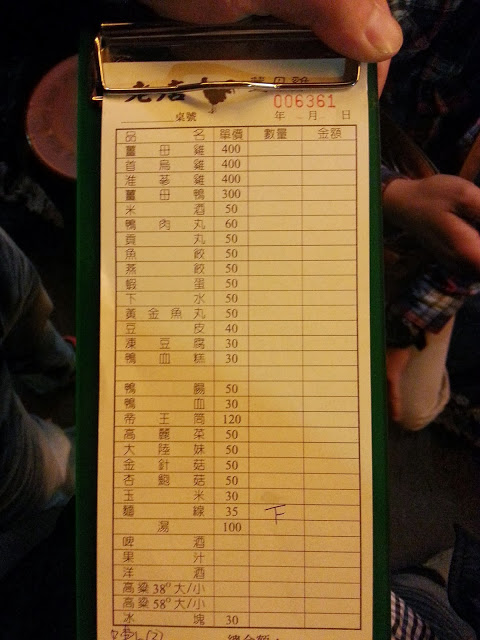 006361
桌號 年 月 日
品名 單價 數量 金額
薑母雞 400
首烏雞 400
淮蔘雞 400
薑母鴨 300
米酒 50
鴨肉丸 60
貢丸 50
魚餃 50
燕餃 50
蝦蛋 50
下水 50
黃金魚丸 50
豆皮 40
凍豆腐 30
鴨血糕 30
鴨腸 50
鴨血 30
帝王筒 120
高麗菜 50
大陸妹 50
金針菇 50
杏鮑菇 50
玉米 30
麵線 35 下
湯 100
啤酒
果汁
洋酒
高粱38°大/小
高粱58°大/小
冰塊 30